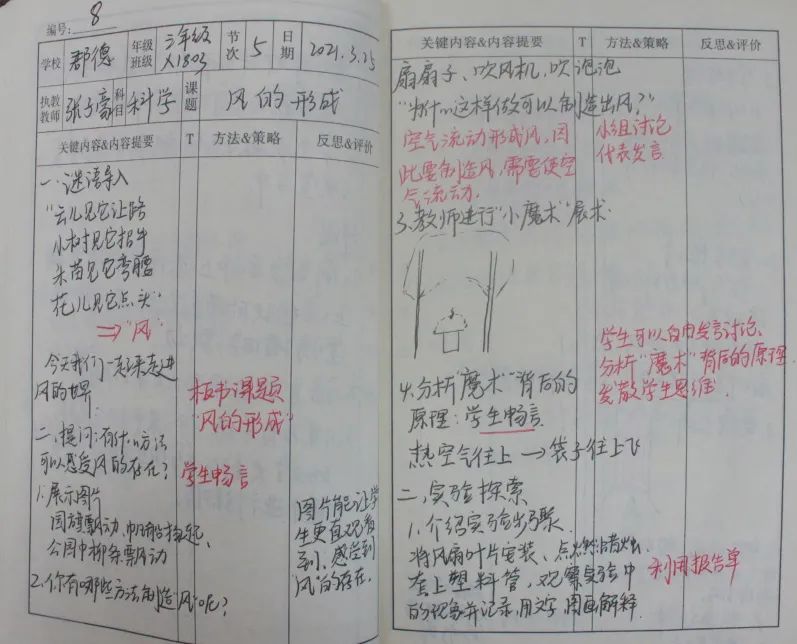 编号: 8
学校 郡德 年级班级 三年级 X1803 节次 5 日期 2021.3.25
执教教师 张子豪 科目 科学 课题 风的形成
关键内容&内容提要 T 方法&策略 反思&评价
一.谜语导入
"云儿见它让路
小树见它招手
禾苗见它弯腰
花儿见它点头"
⇒"风"
今天我们一起来走进
风的世界
板书课题
"风的形成"
二、提问:有什么方法
可以感受风的存在?
学生畅言
1.展示图片
国旗飘动、
公园中柳条飘动
图片能让学
生更直观看
到、感觉到
"风"的存在.
2.你有哪些方法制造"风"呢?
关键内容&内容提要 T 方法&策略 反思&评价
扇扇子、吹风机,吹泡泡
"为什么这样做可以制造出风?"
空气流动形成风,因
此要制造风,需要使空
气流动.
小组讨论
代表发言
3.教师进行"小魔术"展示
学生可以自由发言讨论、
分析"魔术"背后的原理
发散学生思维.
4.分析"魔术"背后的
原理:学生畅言
热空气往上→袋子往上飞
二、实验探索
1.介绍实验步骤
将风扇叶片安装、点燃蜡烛
套上塑料管,观察实验中
的现象并记录.用文字、图画解释.
利用报告单